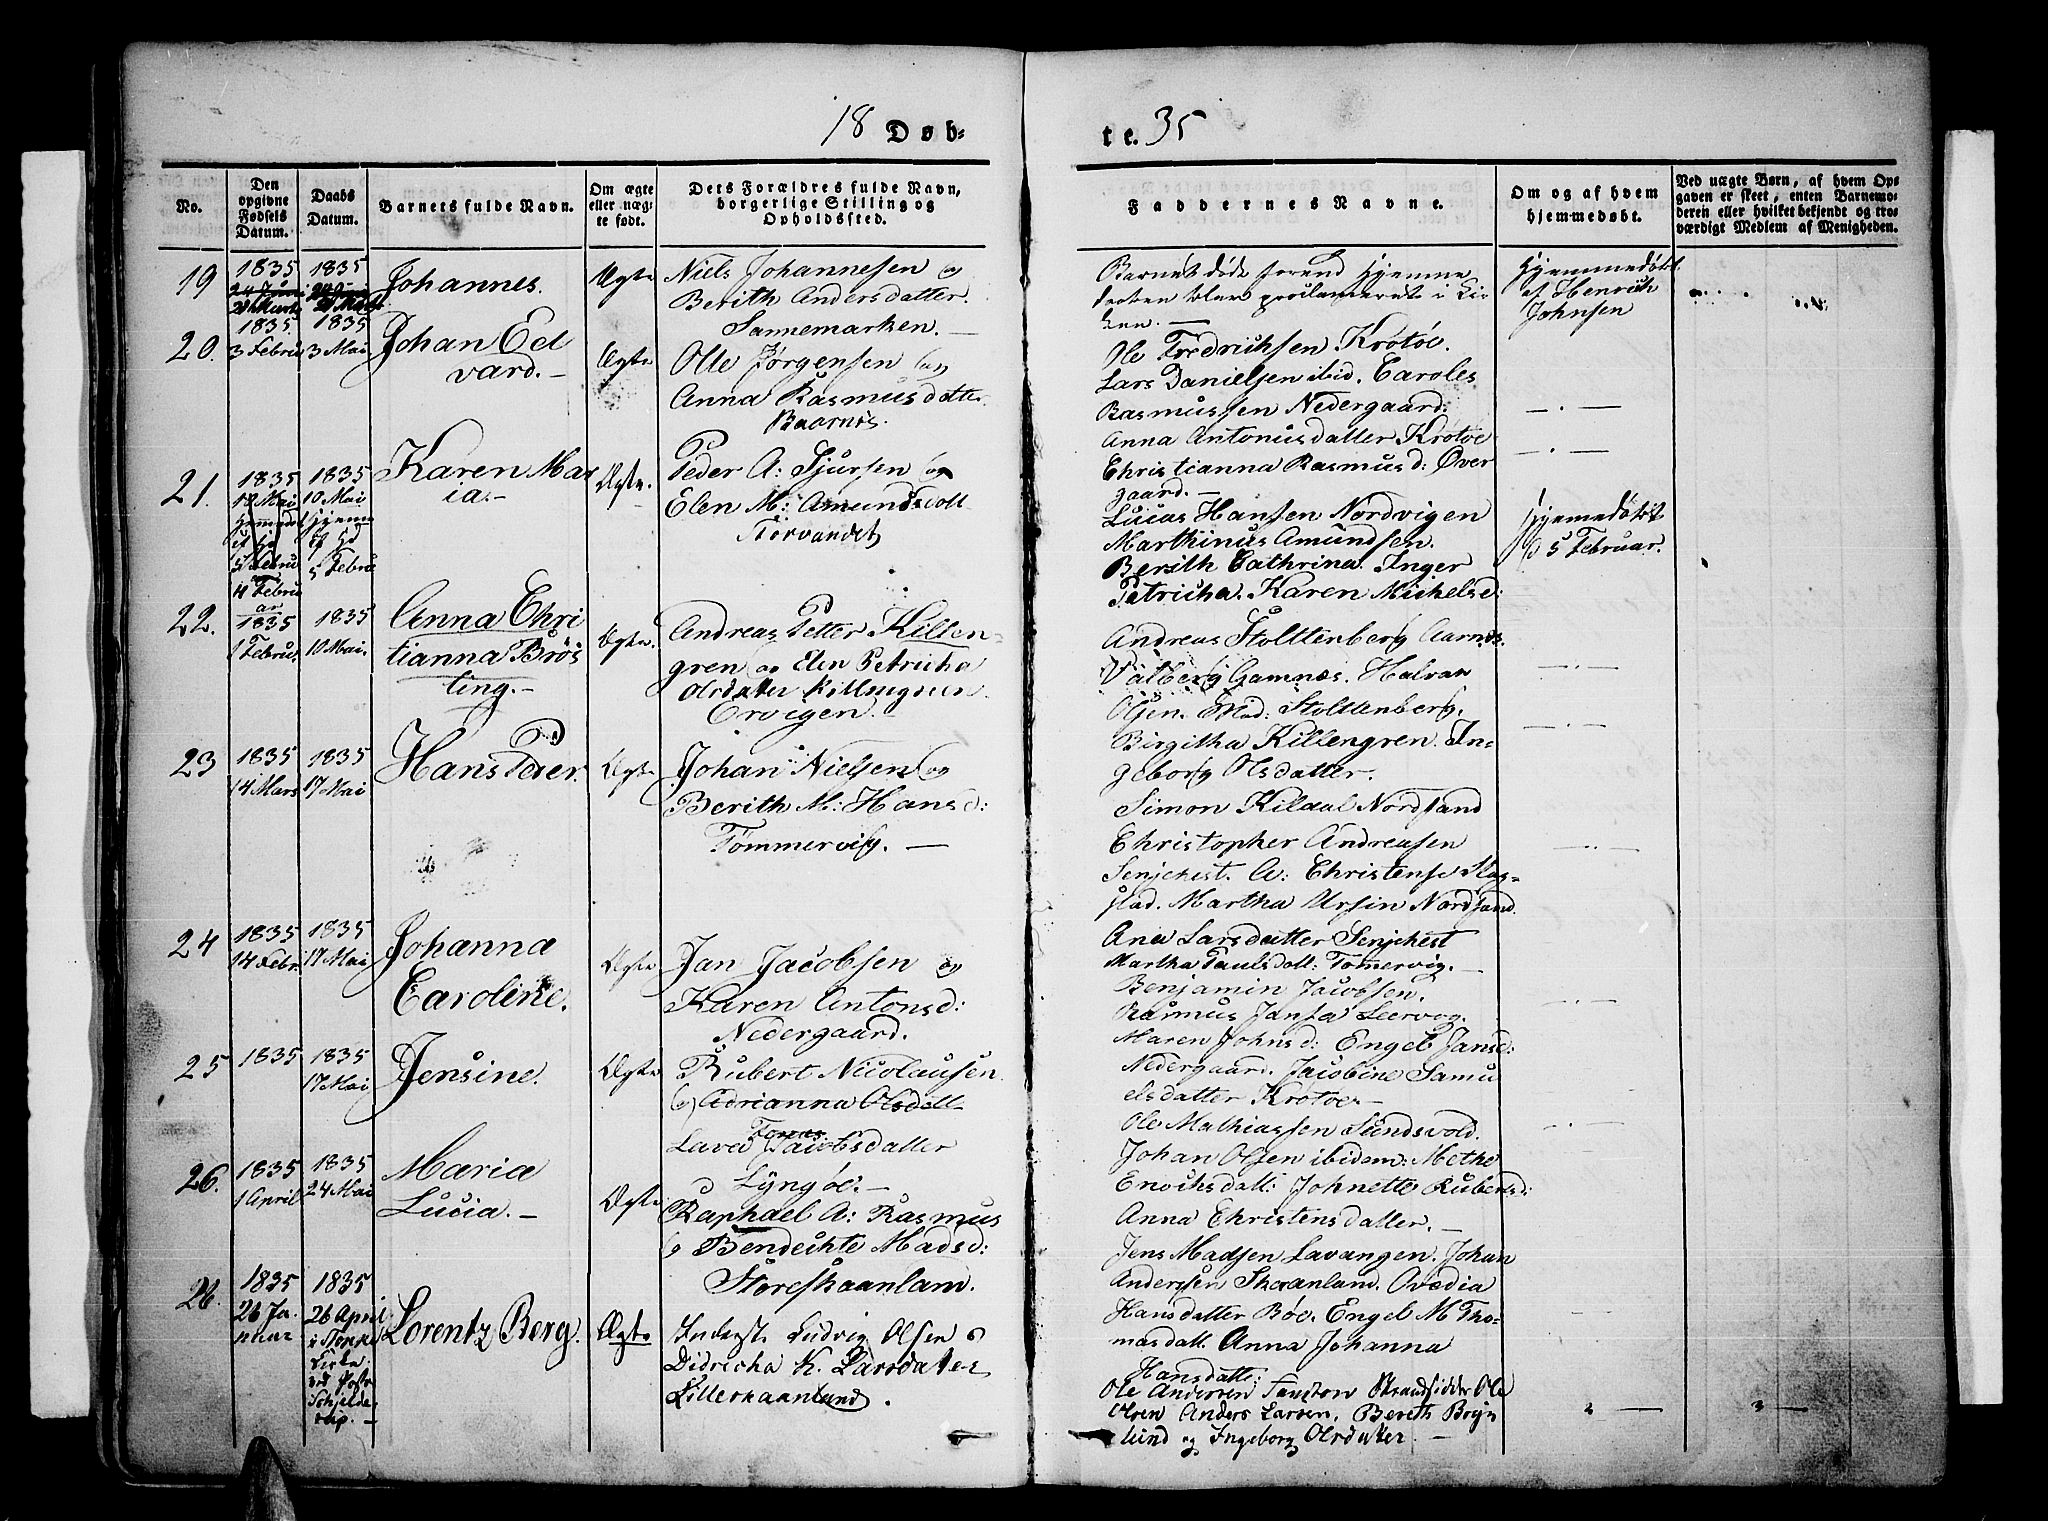 18 Døb-
te. 35
No.
Den opgivne Fødsels Datum.
Daabs Datum.
Barnets fulde Navn.
Om ægte eller uægte født.
Dets Forældres fulde Navn, borgerlige Stilling og Opholdssted.
Faddernes Navne.
Om og af hvem hjemmedøbt.
Ved uægte Børn, af hvem Opgaven er skeet, enten Barnemoderen eller hvilket bekjendt og troværdigt Medlem af Menigheden.
19
1835
1835
Johannes.
Ægte
Niels Johannesen og
Berith Andersdatter.
Sannemarken. —
Barnet døde forend Hjemme
daaben blev proclameret i Kir
ken. —
Hjemmedøbt
af Henrich
Johnsen
20.
1835. 3 Febru
1835 3 Mai
Johan Ed
vard. —
Ægte
Olle Jørgensen og
Anna Rasmusdatter
Ole Fredrichsen Krøtøe.
Lars Danielsen ibid. Caroles
Rasmussen Nedergaard:
Anna Antonusdatter Krøtøe
Christianna Rasmusd: Øver
gaard. —
21.
1835
1835
10 Mai
Hjemme
5 Febru
4 Febru
ar
Karen Mar
ia. -
Ægte.
Peder A: Sjursen og
Elen M: Amundsdatt
Lucas Hansen Nordvigen
Marthinus Amundsen.
Berith Cathrina. Inger
Petricha. Karen Michelsd:
Hjemmedøbt
d 5 Februar.
22.
1835
1 Febru.
1835
10 Mai.
Anna Chri
tianna Brøs
ting. -
Ægte.
Andreas Petter Killen-
gren og Elen Petriche
Olsdatter Killengreen.
Ervigen. -
Andreas Stolttenberg Aarnes.
Valberg Gamnæs. Halvar
Olsen. Mad: Stolttenberg.
Birgitha Killengren. In-
geborg Olsdatter.
23
1835
14 Mars
1835
17 Mai
Hans Peder.
Ægte
Johan Nielsen og
Berith M: Hansd:
Tømmervig. —
Simon Kildal Nordsand
Christopher Andreasen
Senjehest. A: Christense Stag-
stad. Martha Ursin Nordsand.
Ane Larsdatter Senjehest
Martha Paulsdatt: Tømervig. —
24
1835
14 Febr.
1835
17 Mai
Johanna
Caroline.
Ægte
Jan Jacobsen og
Karen Antonsd:
Nedergaard.
Benjamin Jacobsen.
Rasmus Jansa Leervog.
Maren Johnsd: Engel Jansd:
Nedergaard. Jacobine Samu
elsdatter Krøtøe -
25
1835
1835
17 Mai
Jensine.
Ægte
Rubert Nicolausen
og Adrianna Olsdatt
Ole Mathiassen Sundsvold.
Johan Olsen ibidem: Methe
Enochsdatt: Johnette Rubertsd:
Anna Christensdatter. —
Jacobsdatter
Lyngøe. -
26.
1835
1 April
1835
24 Mai
Maria
Lucia. -
Ægte
Raphael A: Rasmus
og Bendichte Madsd:
Storeskaanlam.
Jens Madsen Lavangen. Johan
Anderssen Skaanland. Ovedia
Hansdatter Bøe. Engel M Tho-
masdatt. Anna Johanna
Hansdatt:
26.
1835
26 Ja-
nuar
1835
26 April
Kirke
Lorentz Berg.
Ægte
Inderst. Ludvig Olsen o
Didricha K. Larsdatter
Lilleskaanland.
Ole Andersen Strandsidder Ole
Olsen Anders Larsen. Bereth
lund og Ingeborg Olsdatter. —